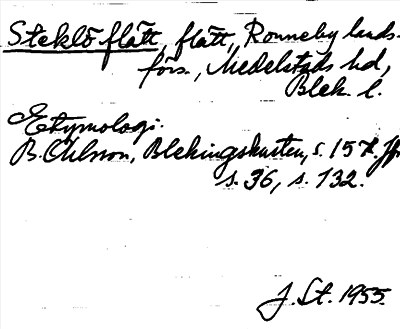 Steklö flätt, flätt, Ronneby lands-
förs., Medelstads hd,
Blek. l.
Etymologi.
B. Ohlson, Blekingskusten, s. 157. Jfr
s. 36, s. 132.
J. St. 1955.